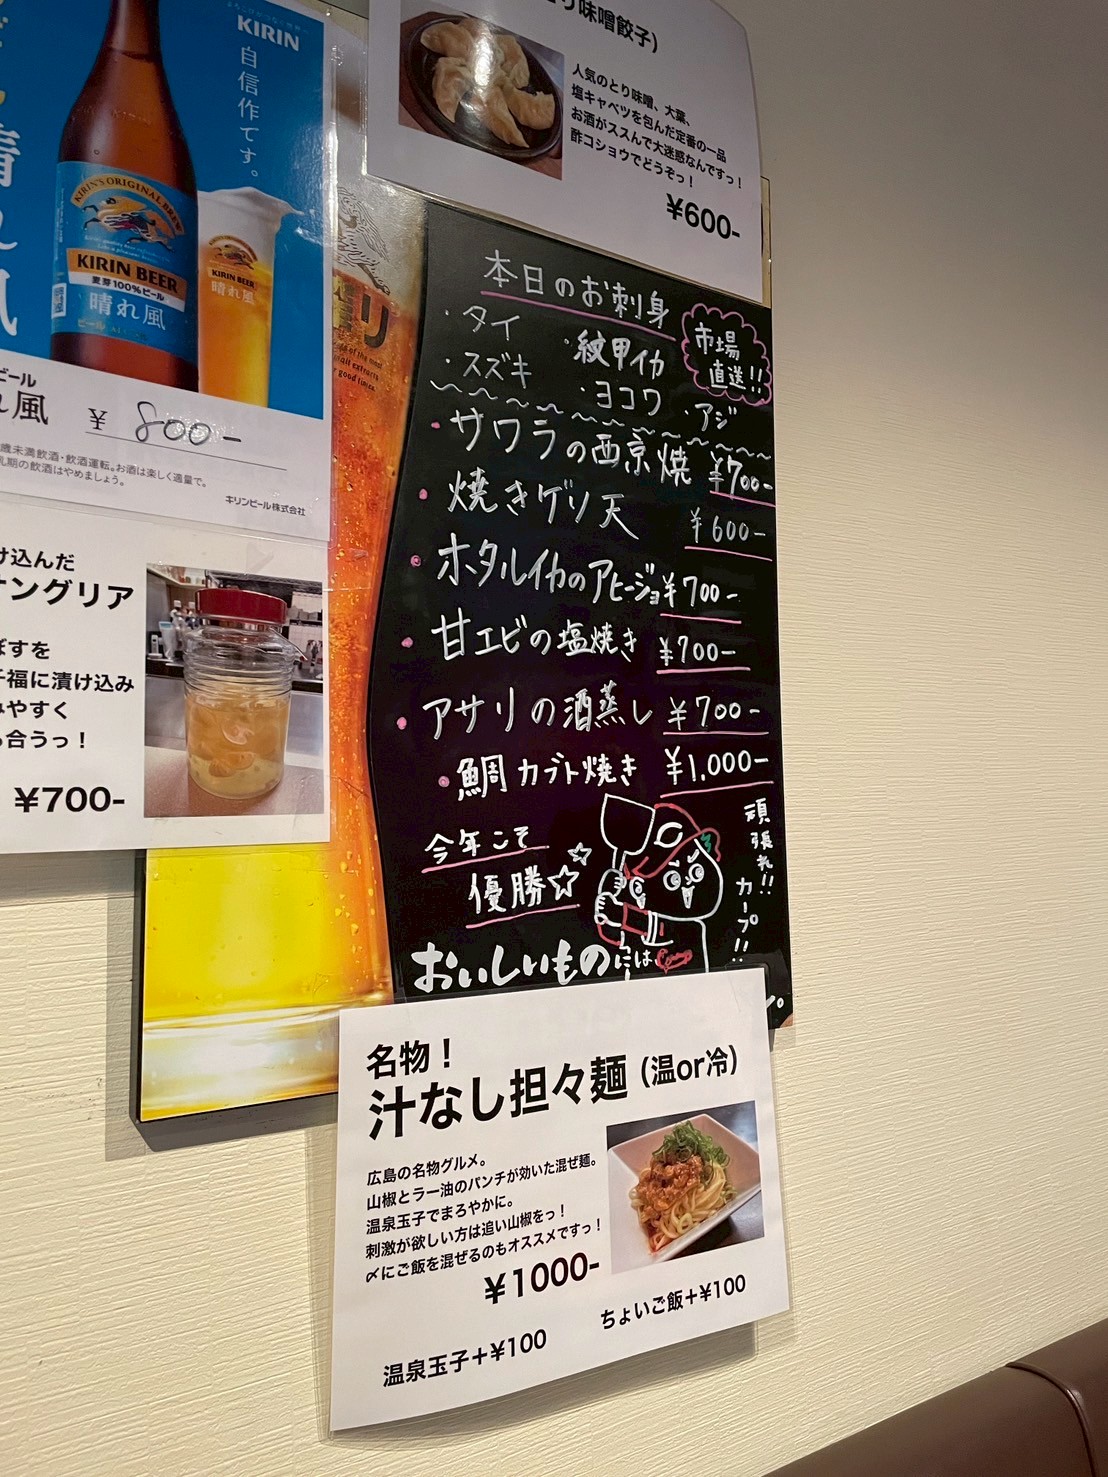 KIRIN
自信作です。
晴れ風
KIRIN'S ORIGINAL BREW
KIRIN BEER
麦芽100%ビール
晴れ風
ビール
KIRIN BEER
晴れ風
ビール
れ風
¥ 800-
歳未満飲酒・飲酒運転。お酒は楽しく適量で。
乳期の飲酒はやめましょう。
キリンビール株式会社
け込んだ
サングリア
ぼすを
千福に漬け込み
みやすく
合うっ!
¥700-
とり味噌餃子)
人気のとり味噌、大葉、
塩キャベツを包んだ定番の一品
お酒がススんで大迷惑なんですっ!
酢コショウでどうぞっ!
¥600-
本日のお刺身
市場
直送!!
・タイ
・紋甲イカ
・スズキ
・ヨコワ
・アジ
・サワラの西京焼 ¥700-
・焼きゲソ天 ¥600-
・ホタルイカのアヒージョ ¥700-
・甘エビの塩焼き ¥700-
・アサリの酒蒸し ¥700-
・鯛カブト焼き ¥1,000-
今年こそ
優勝☆
頑張れ!!
カープ!!
おいしいものには
名物!
汁なし担々麺(温or冷)
広島の名物グルメ。
山椒とラー油のパンチが効いた混ぜ麺。
温泉玉子でまろやかに。
刺激が欲しい方は追い山椒をっ!
〆にご飯を混ぜるのもオススメですっ!
¥1000-
ちょいご飯+¥100
温泉玉子+¥100